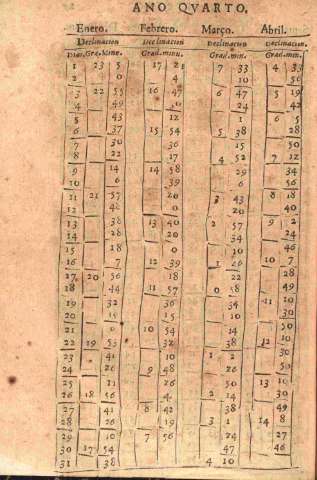 ANO QVARTO.
Enero. Febrero. Março. Abril.
Declinacion Declinacion Declinacion Declinacion
Dias. Grad. Mine. Grad. min. Grad. min. Grad. min.
1 23 5 17 21 7 33 4 33
2 0 4 10 56
3 22 55 16 47 6 47 5 19
4 49 10 42
5 43 12 6 5
6 37 15 54 5 38 28
7 30 36 50
8 22 17 4 52 7 12
9 14 14 58 29 34
10 6 39 6 56
11 21 57 20 3 43 8 18
12 48 0 20 40
13 38 13 40 2 57 9 2
14 28 20 34 24
15 18 0 10 46
16 7 12 39 1 10 7
17 20 56 18 28
18 44 11 57 38 49
19 32 36 11 10
20 15 30
21 0 10 54 14 50
22 19 53 32 38 12 10
23 41 10 1 2 30
24 26 9 48 26 50
25 11 26 50 13 10
26 18 56 4 2 14 30
27 41 8 42 38 49
28 26 3 1 14 8
29 10 7 56 24 27
30 17 54 47 46
31 38 4 10